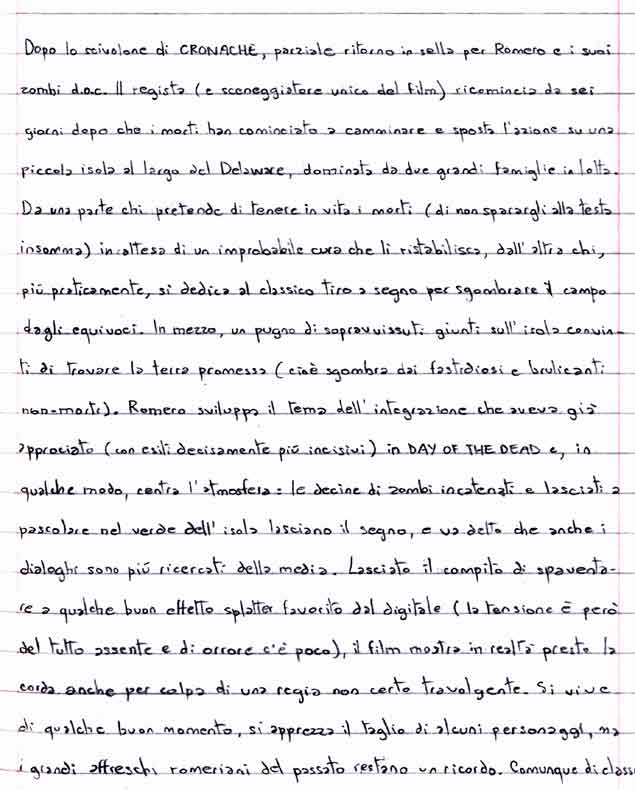 Dopo lo scivolone di CRONACHE, parziale ritorno in sella per Romero e i suoi
zombi d.o.c. Il regista (e sceneggiatore unico del film) ricomincia da sei
giorni dopo che i morti han cominciato a camminare e sposta l'azione su una
piccola isola al largo del Delaware, dominata da due grandi famiglie in lotta.
Da una parte chi pretende di tenere in vita i morti (di non spararegli alla testa
insomma) in attesa di un improbabile cura che li ristabilisca, dall'altra chi,
più praticamente, si dedica al classico tiro a segno per sgombrare il campo
dagli equivoci. In mezzo, un pugno di sopravvissuti giunti sull'isola convin-
ti di trovare la terra promessa (cioè sgombra dai fastidiosi e brulicanti
non-morti). Romero sviluppa il tema dell'integrazione che aveva già
approciato (con esiti decisamente più incisivi) in DAY OF THE DEAD e, in
qualche modo, centra l'atmosfera: le decine di zombi incatenati e lasciati a
pascolare nel verde dell'isola lasciano il segno, e va detto che anche i
dialoghi sono più ricercati della media. Lasciato il compito di spaventa-
re a qualche buon effetto splatter favorito dal digitale (la tensione è però
del tutto assente e di orrore c'è poco), il film mostra in realtà presto la
corda anche per colpa di una regia non certo travolgente. Si vive
di qualche buon momento, si apprezza il taglio di alcuni personaggi, ma
i grandi affreschi romeriani del passato restano un ricordo. Comunque di class